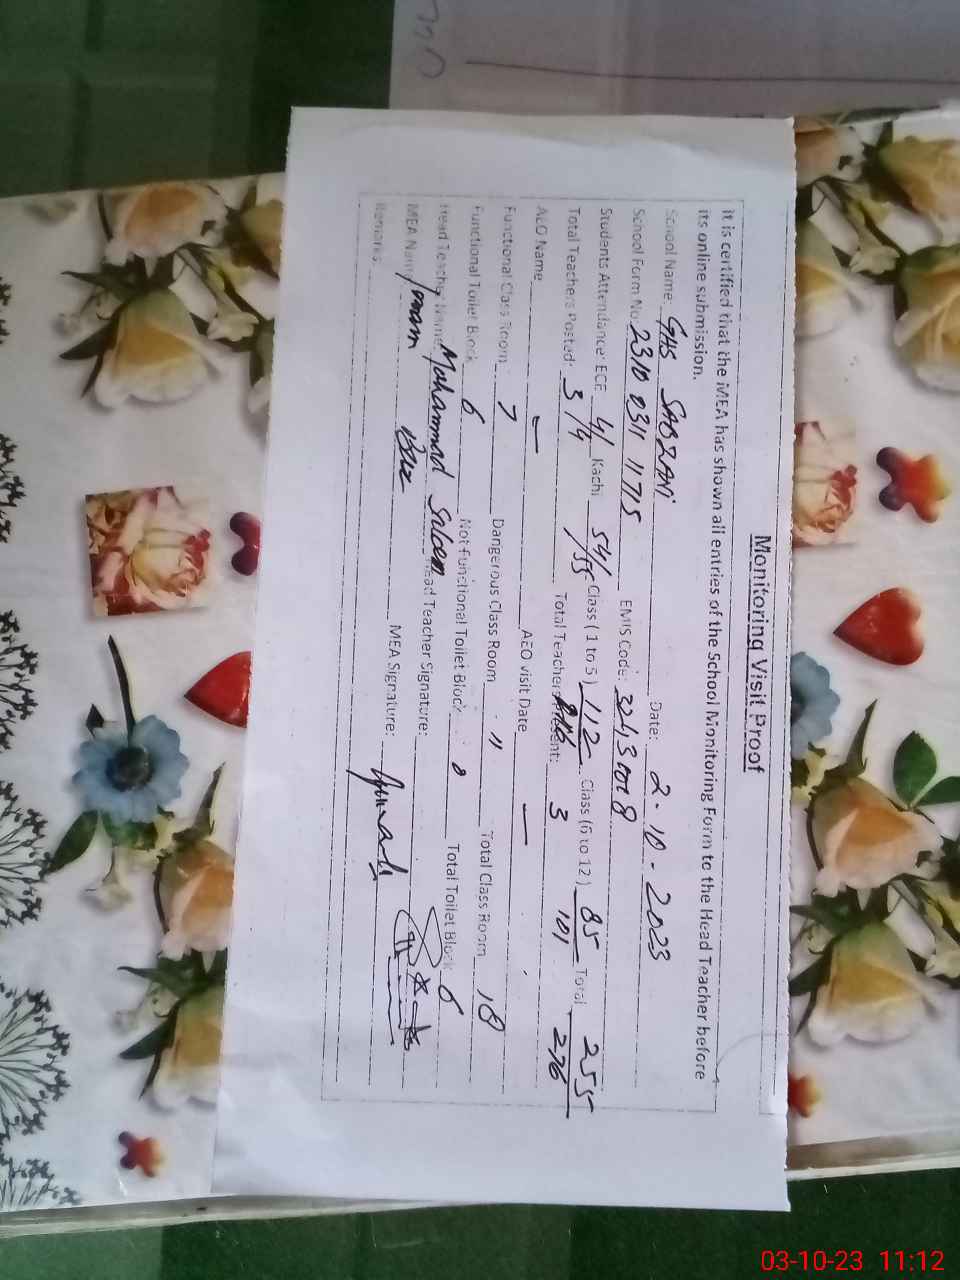 Monitoring Visit Proof
It is certified that the MEA has shown all entries of the School Monitoring Form to the Head Teacher before
its online submission.
School Name: GHS SABZANI Date: 2-10-2023
School Form No: 2310 0311 11715 EMIS Code:
Students Attendance: ECE 4/ Kachi 54/55 Class ( 1 to 5 ) 112 Class (6 to 12 ) 85/101 Total 255/276
Total Teachers Posted: 3 Total Teachers Present: 3
AEO Name — AEO visit Date —
Functional Class Room: 7 Dangerous Class Room 11 Total Class Room 18
Functional Toilet Block 6 Not Functional Toilet Block 0 Total Toilet Block 6
Head Teacher Name Mohammad Head Teacher Signature:
MEA Name MEA Signature:
Remarks:
03-10-23 11:12